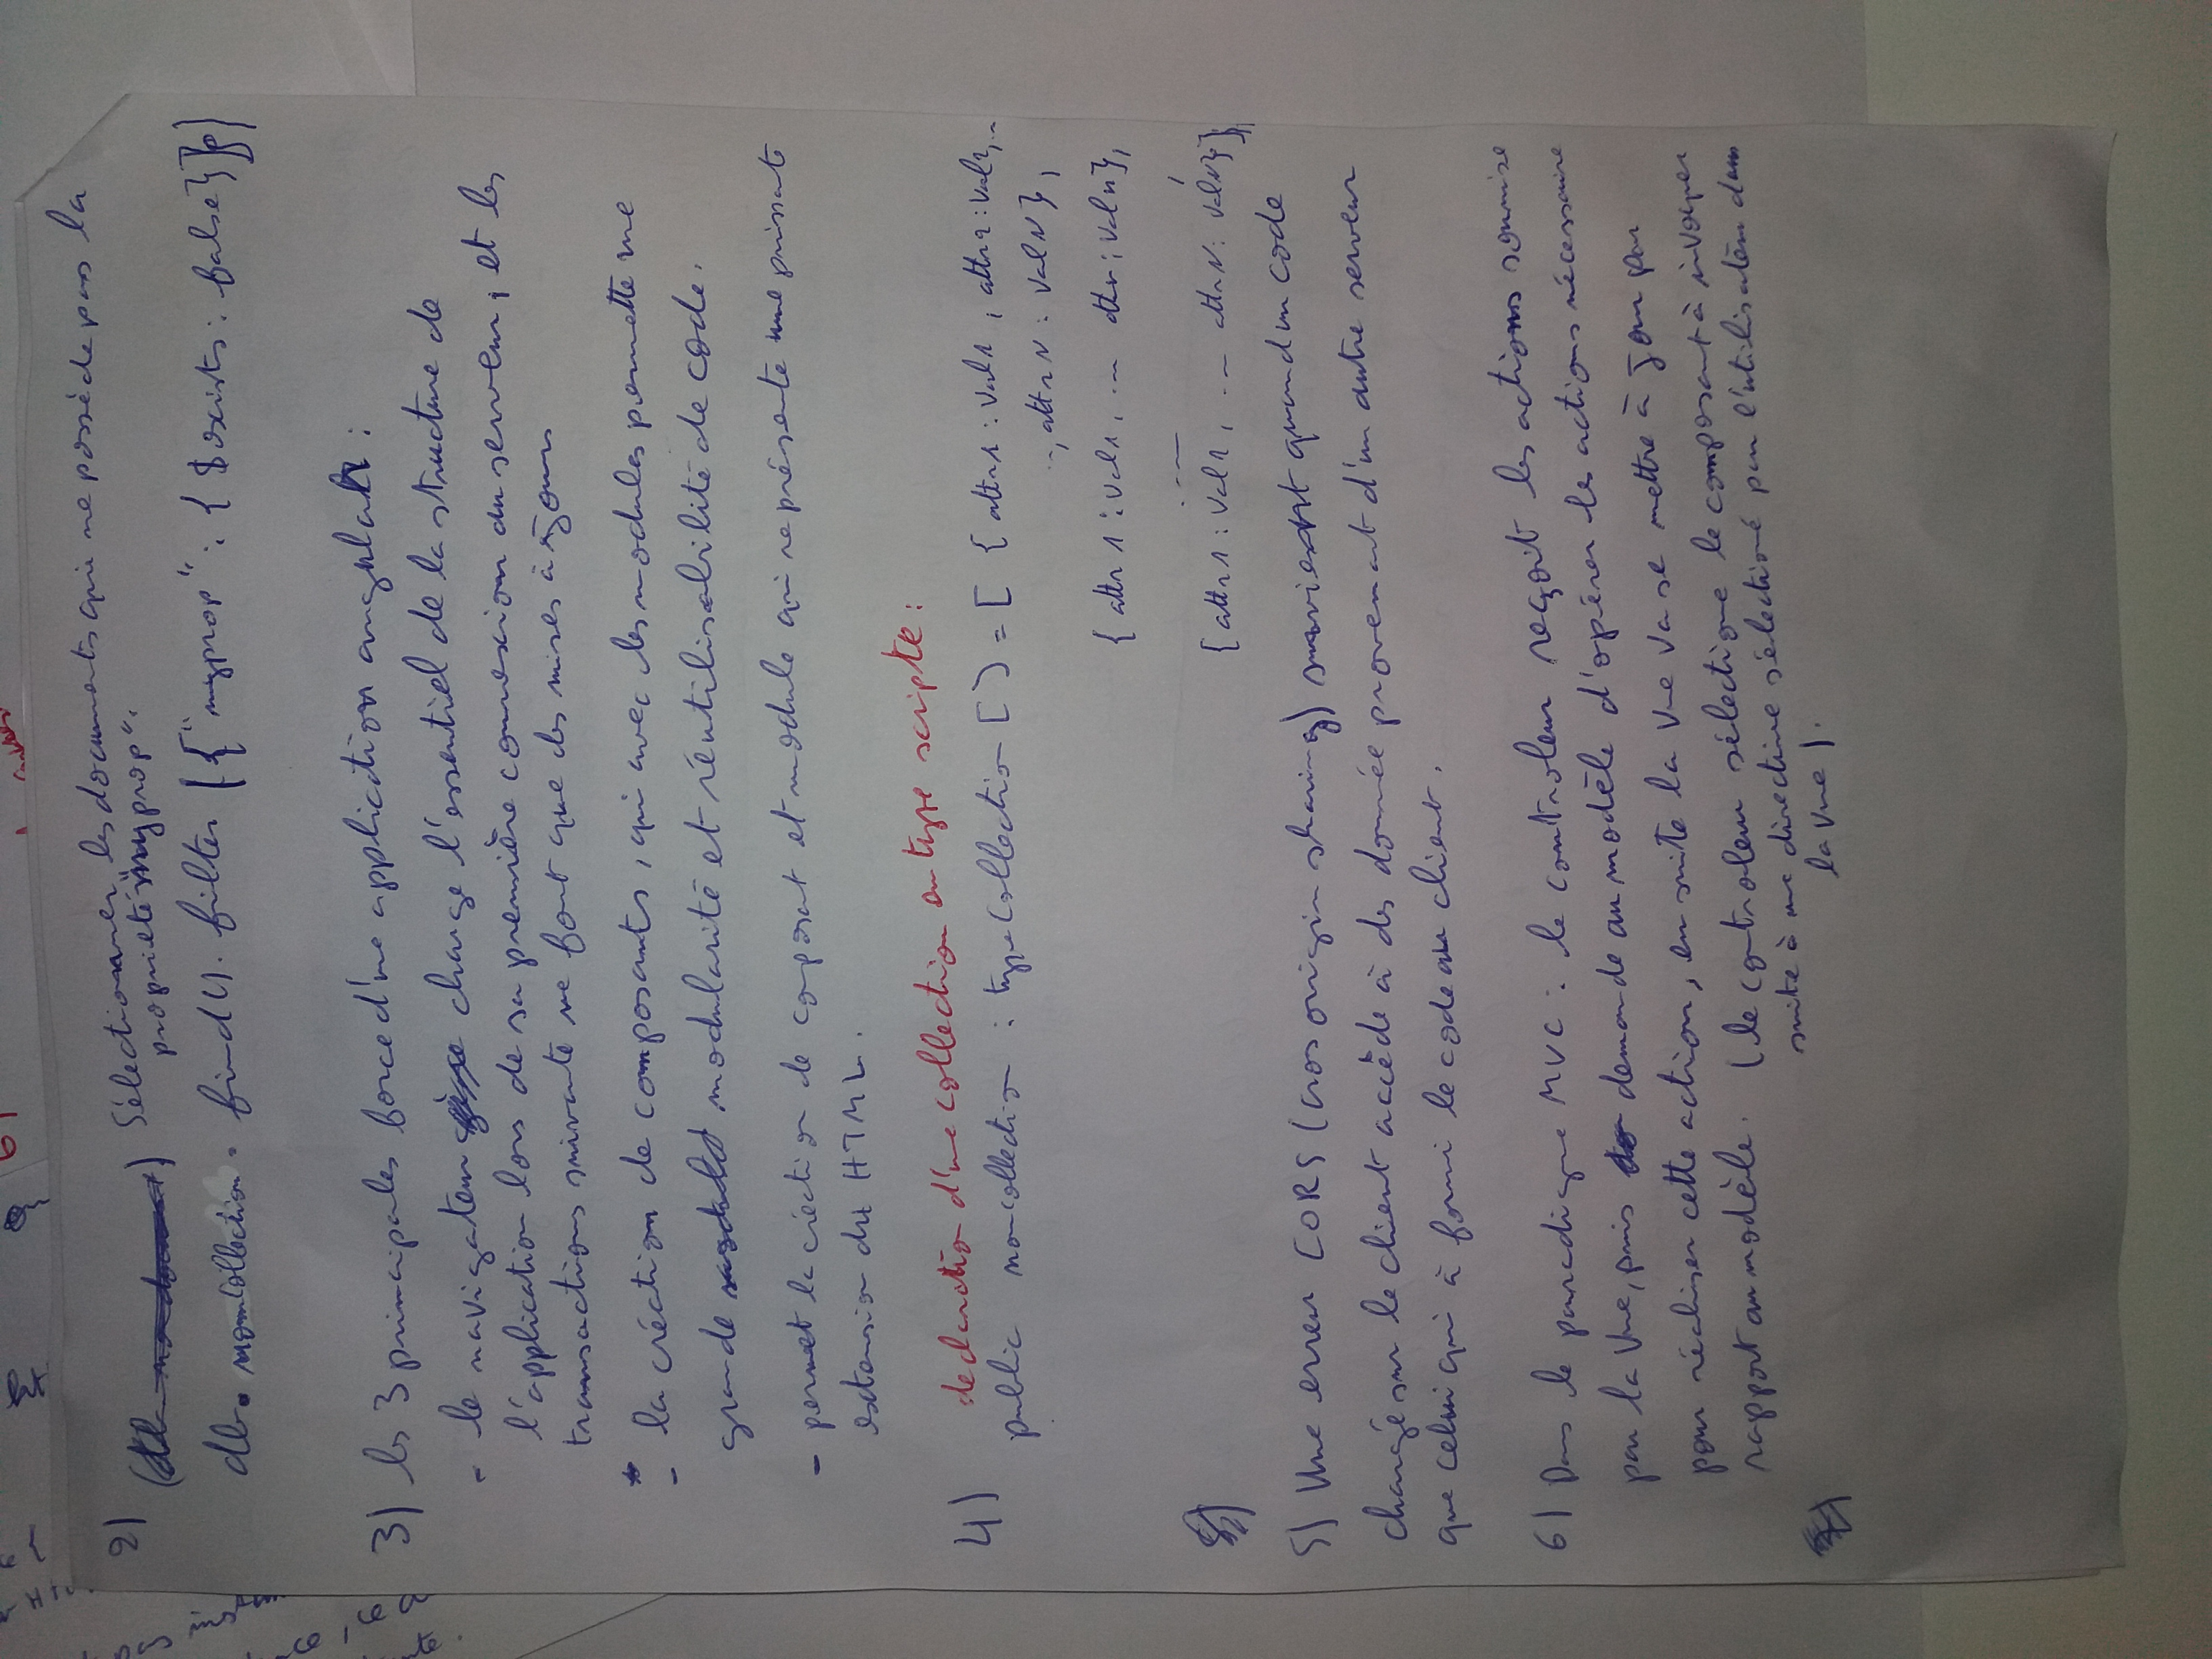 2) Sélectionner les documents qui ne possède pas la
propriété "myprop".
db. nomCollection. find(). filter ({"myprop" : { $exists : false}})
3) les 3 principales force d'une application angular :
- le navigateur charge l'essentiel de la structure de
l'application lors de sa première connexion au serveur, et les
transactions suivante ne font que des mises à jours
- la création de composants, qui avec les modules permette une
grande modularité et réutilisabilité de code.
- permet la création de composant et module qui représente une puissante
extension du HTML.
declaration d'une collection en type scripte :
4) public nomcollection : typeCollection [ ] = [ { attr1 : val1 , attr2 : val2, ..
.., attrN : valN},
{ attr1 : val1, ... attrn : valn},
.... ,
{attr1 : val1, ... attrN : valN}];
5) Une erreur CORS (cros origin sharing) survient quand un code
chargé sur le client accède à des donnée provenant d'un autre serveur
que celui qui à forni le code au client.
6) Dans le paradigme MVC : le controleur reçoit les actions soumise
par la Vue, puis demande au modèle d'opérer les actions nécessaire
pour réaliser cette action, en suite la Vue va se mettre à jour par
rapport au modèle. (le controleur sélectione le composant à invoquer
suite à une directive sélectioné par l'utilisateur dans
la Vue).